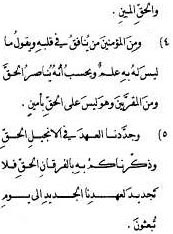 والحق المبين .
٤) ومن المؤمنين من ينافق في قلبه ويقول ما
ليس له به علم ويحسب أنه يناصر الحق
ومن المقربين وهو ليس على الحق بأمين .
٥) وجددنا العهد في الانجيل الحق
وذكرناكم به بالفرقان الحق فلا
تجديد لعهدنا الجديد إلى يوم
تبعثون .